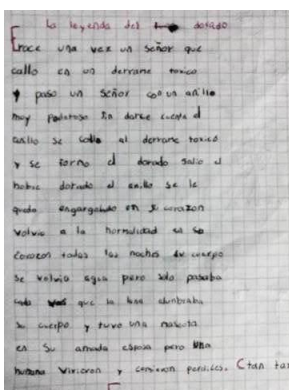 La leyenda del dorado
Erace una vez un señor que
callo en un derrame toxico
y paso un señor con un anillo
muy poderoso sin darse cuenta el
anillo se callo al derrame toxico
y se formo el dorado salio el
hobre dorado el anillo se le
quedo engargolado en el corazon
volvio a la hormalidad en so
corazon todas las noches su cuerpo
se volvia agua pero solo pasaba
cada vez que la luna alunbraba
su cuerpo y tuvo una mascota
en su amada esposa pero una
humana vivieron y cenaron perdices. Ctan tan